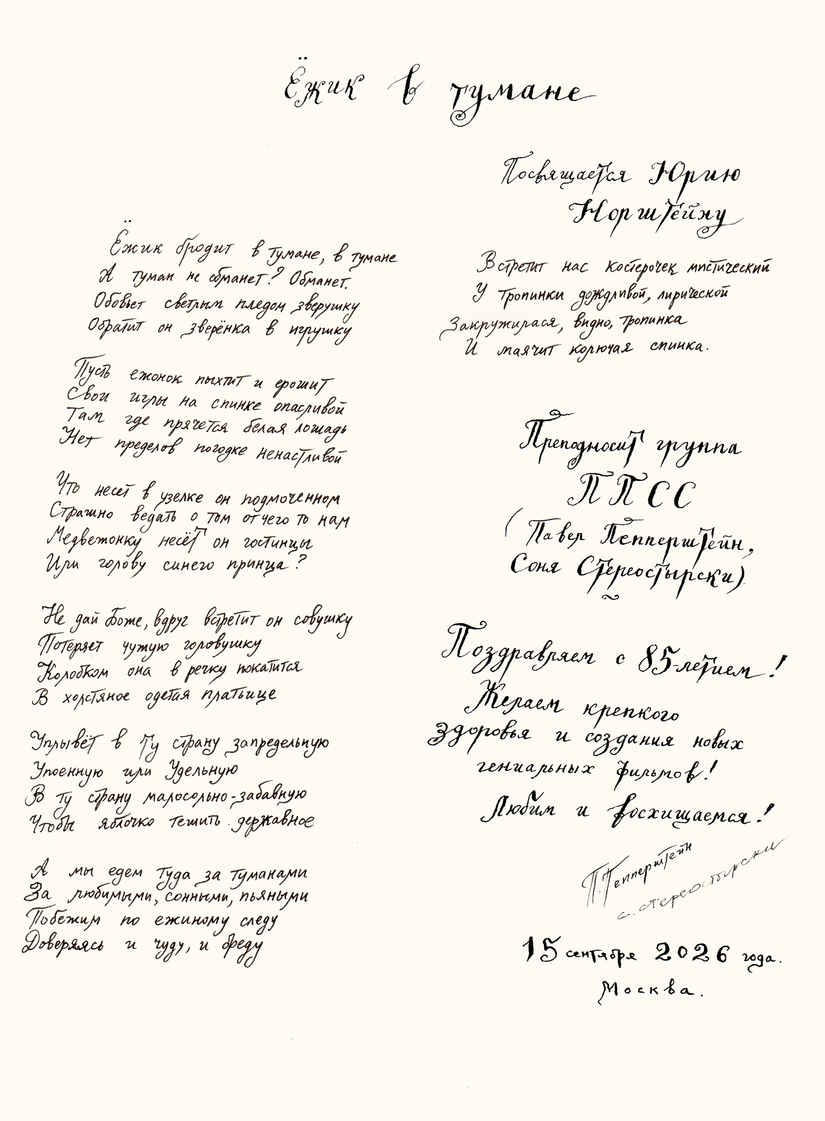 Ёжик в тумане
Посвящается Юрию
Норштейну
Ёжик бродит в тумане, в тумане
А туман не обманет? Обманет.
Обовьет светлым пледом зверушку
Обратит он зверёнка в игрушку
Пусть ежонок пыхтит и ерошит
Свои иглы на спинке опасливой
Там где прячется белая лошадь
Нет пределов погодке ненастливой
Что несет в узелке он подмоченном
Страшно ведать о том отчего то нам
Медвежонку несёт он гостинцы
Или голову синего принца?
Не дай Боже, вдруг встретит он совушку
Потеряет чужую головушку
Колобком она в речку покатится
В холстяное одетая платьице
Уплывёт в ту страну запредельную
Упоенную или Удельную
В ту страну малосольно-забавную
Чтобы яблочко тешить державное
А мы едем туда за туманами
За любимыми, сонными, пьяными
Побежим по ежиному следу
Доверяясь и чуду, и бреду
Встретит нас костерочек мистический
У тропинки дождливой, лирической
Закружилася, видно, тропинка
И маячит колючая спинка.
Преподносит группа
ППСС
(Павел Пепперштейн,
Соня Стереостырски)
Поздравляем с 85-летием!
Желаем крепкого
здоровья и создания новых
гениальных фильмов!
Любим и восхищаемся!
П. Пепперштейн
С. Стереостырски
15 сентября 2026 года.
Москва.